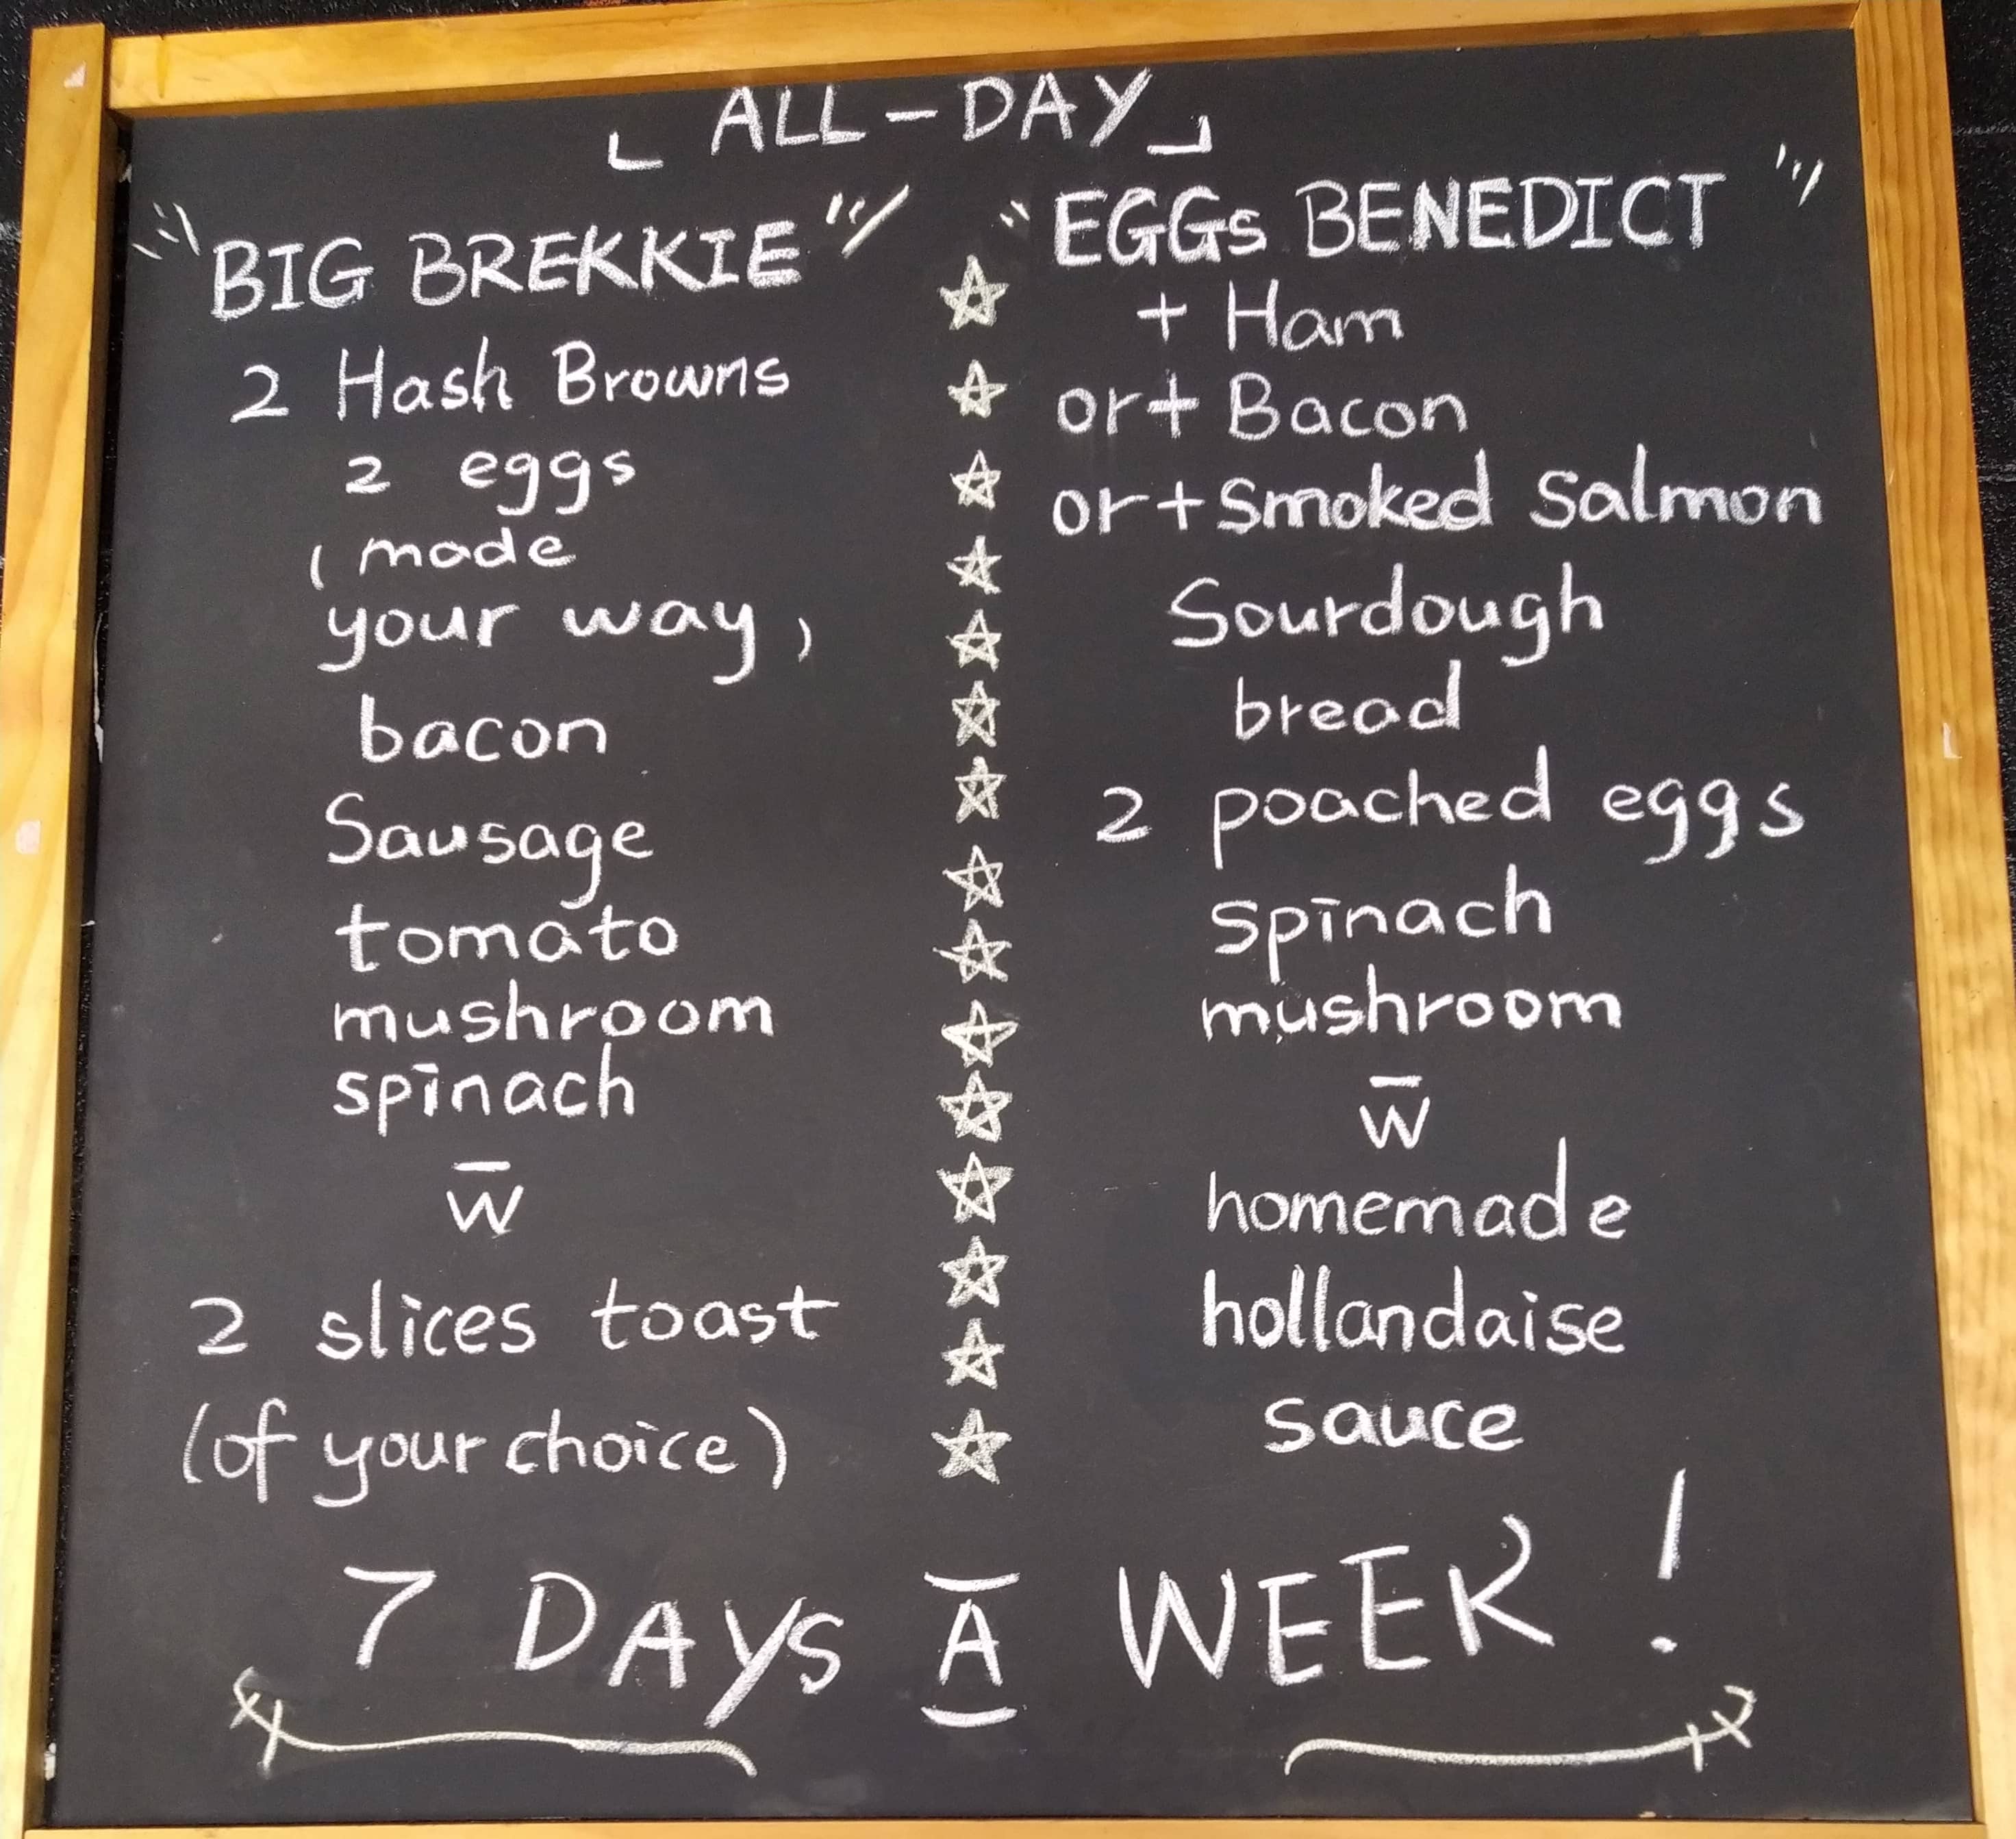 ALL-DAY
"BIG BREKKIE"
2 Hash Browns
2 eggs
(made
your way)
bacon
Sausage
tomato
mushroom
spinach
w̄
2 slices toast
(of your choice)
"EGGs BENEDICT"
+ Ham
or + Bacon
or + Smoked Salmon
Sourdough
bread
2 poached eggs
spinach
mushroom
w̄
homemade
hollandaise
sauce
7 DAYS A WEEK!